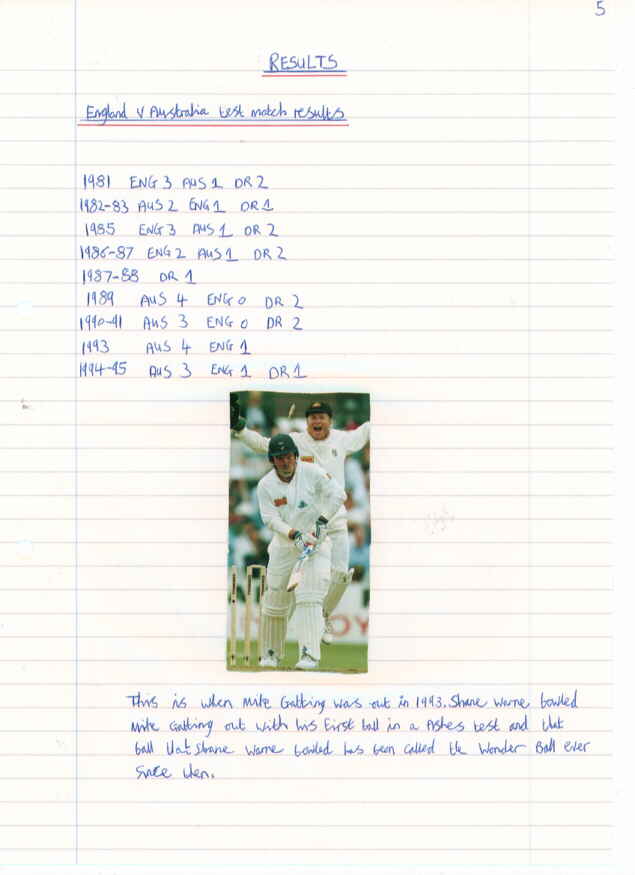 5
RESULTS
England V Australia test match results
1981 ENG 3 AUS 1 DR 2
1982-83 AUS 2 ENG 1 DR 1
1985 ENG 3 AUS 1 DR 2
1986-87 ENG 2 AUS 1 DR 2
1987-88 DR 1
1989 AUS 4 ENG 0 DR 2
1990-91 AUS 3 ENG 0 DR 2
1993 AUS 4 ENG 1
1994-95 AUS 3 ENG 1 DR 1
This is when Mike Gatting was out in 1993. Shane Warne bowled
Mike Gatting out with his first ball in a Ashes test and that
ball that Shane Warne bowled has been called the Wonder Ball ever
since then.